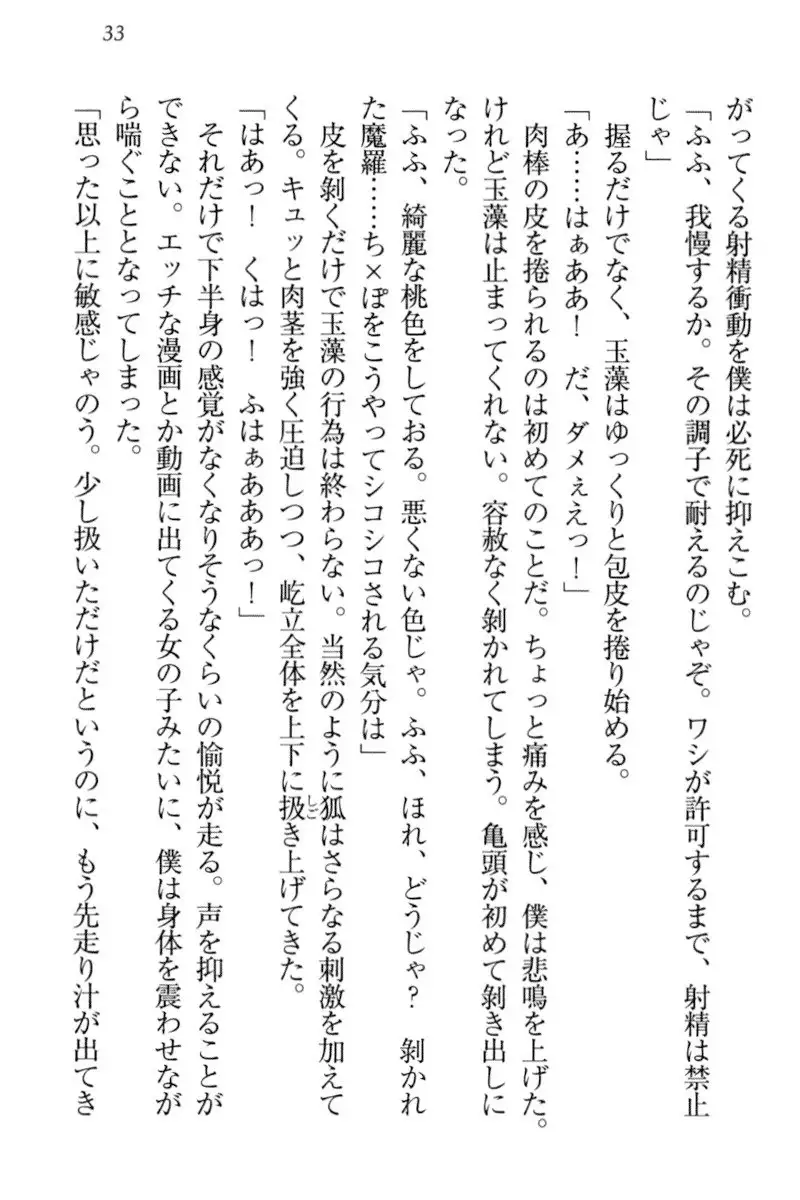 33
がってくる射精衝動を僕は必死に抑えこむ。
「ふふ、我慢するか。その調子で耐えるのじゃぞ。ワシが許可するまで、射精は禁止
じゃ」
　握るだけでなく、玉藻はゆっくりと包皮を捲り始める。
「あ……はぁああ！　だ、ダメぇえっ！」
　肉棒の皮を捲られるのは初めてのことだ。ちょっと痛みを感じ、僕は悲鳴を上げた。
けれど玉藻は止まってくれない。容赦なく剝かれてしまう。亀頭が初めて剝き出しに
なった。
「ふふ、綺麗な桃色をしておる。悪くない色じゃ。ふふ、ほれ、どうじゃ？　剝かれ
た魔羅……ち×ぽをこうやってシコシコされる気分は」
　皮を剝くだけで玉藻の行為は終わらない。当然のように狐はさらなる刺激を加えて
くる。キュッと肉茎を強く圧迫しつつ、屹立全体を上下に扱しごき上げてきた。
「はあっ！　くはっ！　ふはぁあああっ！」
　それだけで下半身の感覚がなくなりそうなくらいの愉悦が走る。声を抑えることが
できない。エッチな漫画とか動画に出てくる女の子みたいに、僕は身体を震わせなが
ら喘ぐこととなってしまった。
「思った以上に敏感じゃのう。少し扱いただけだというのに、もう先走り汁が出てき